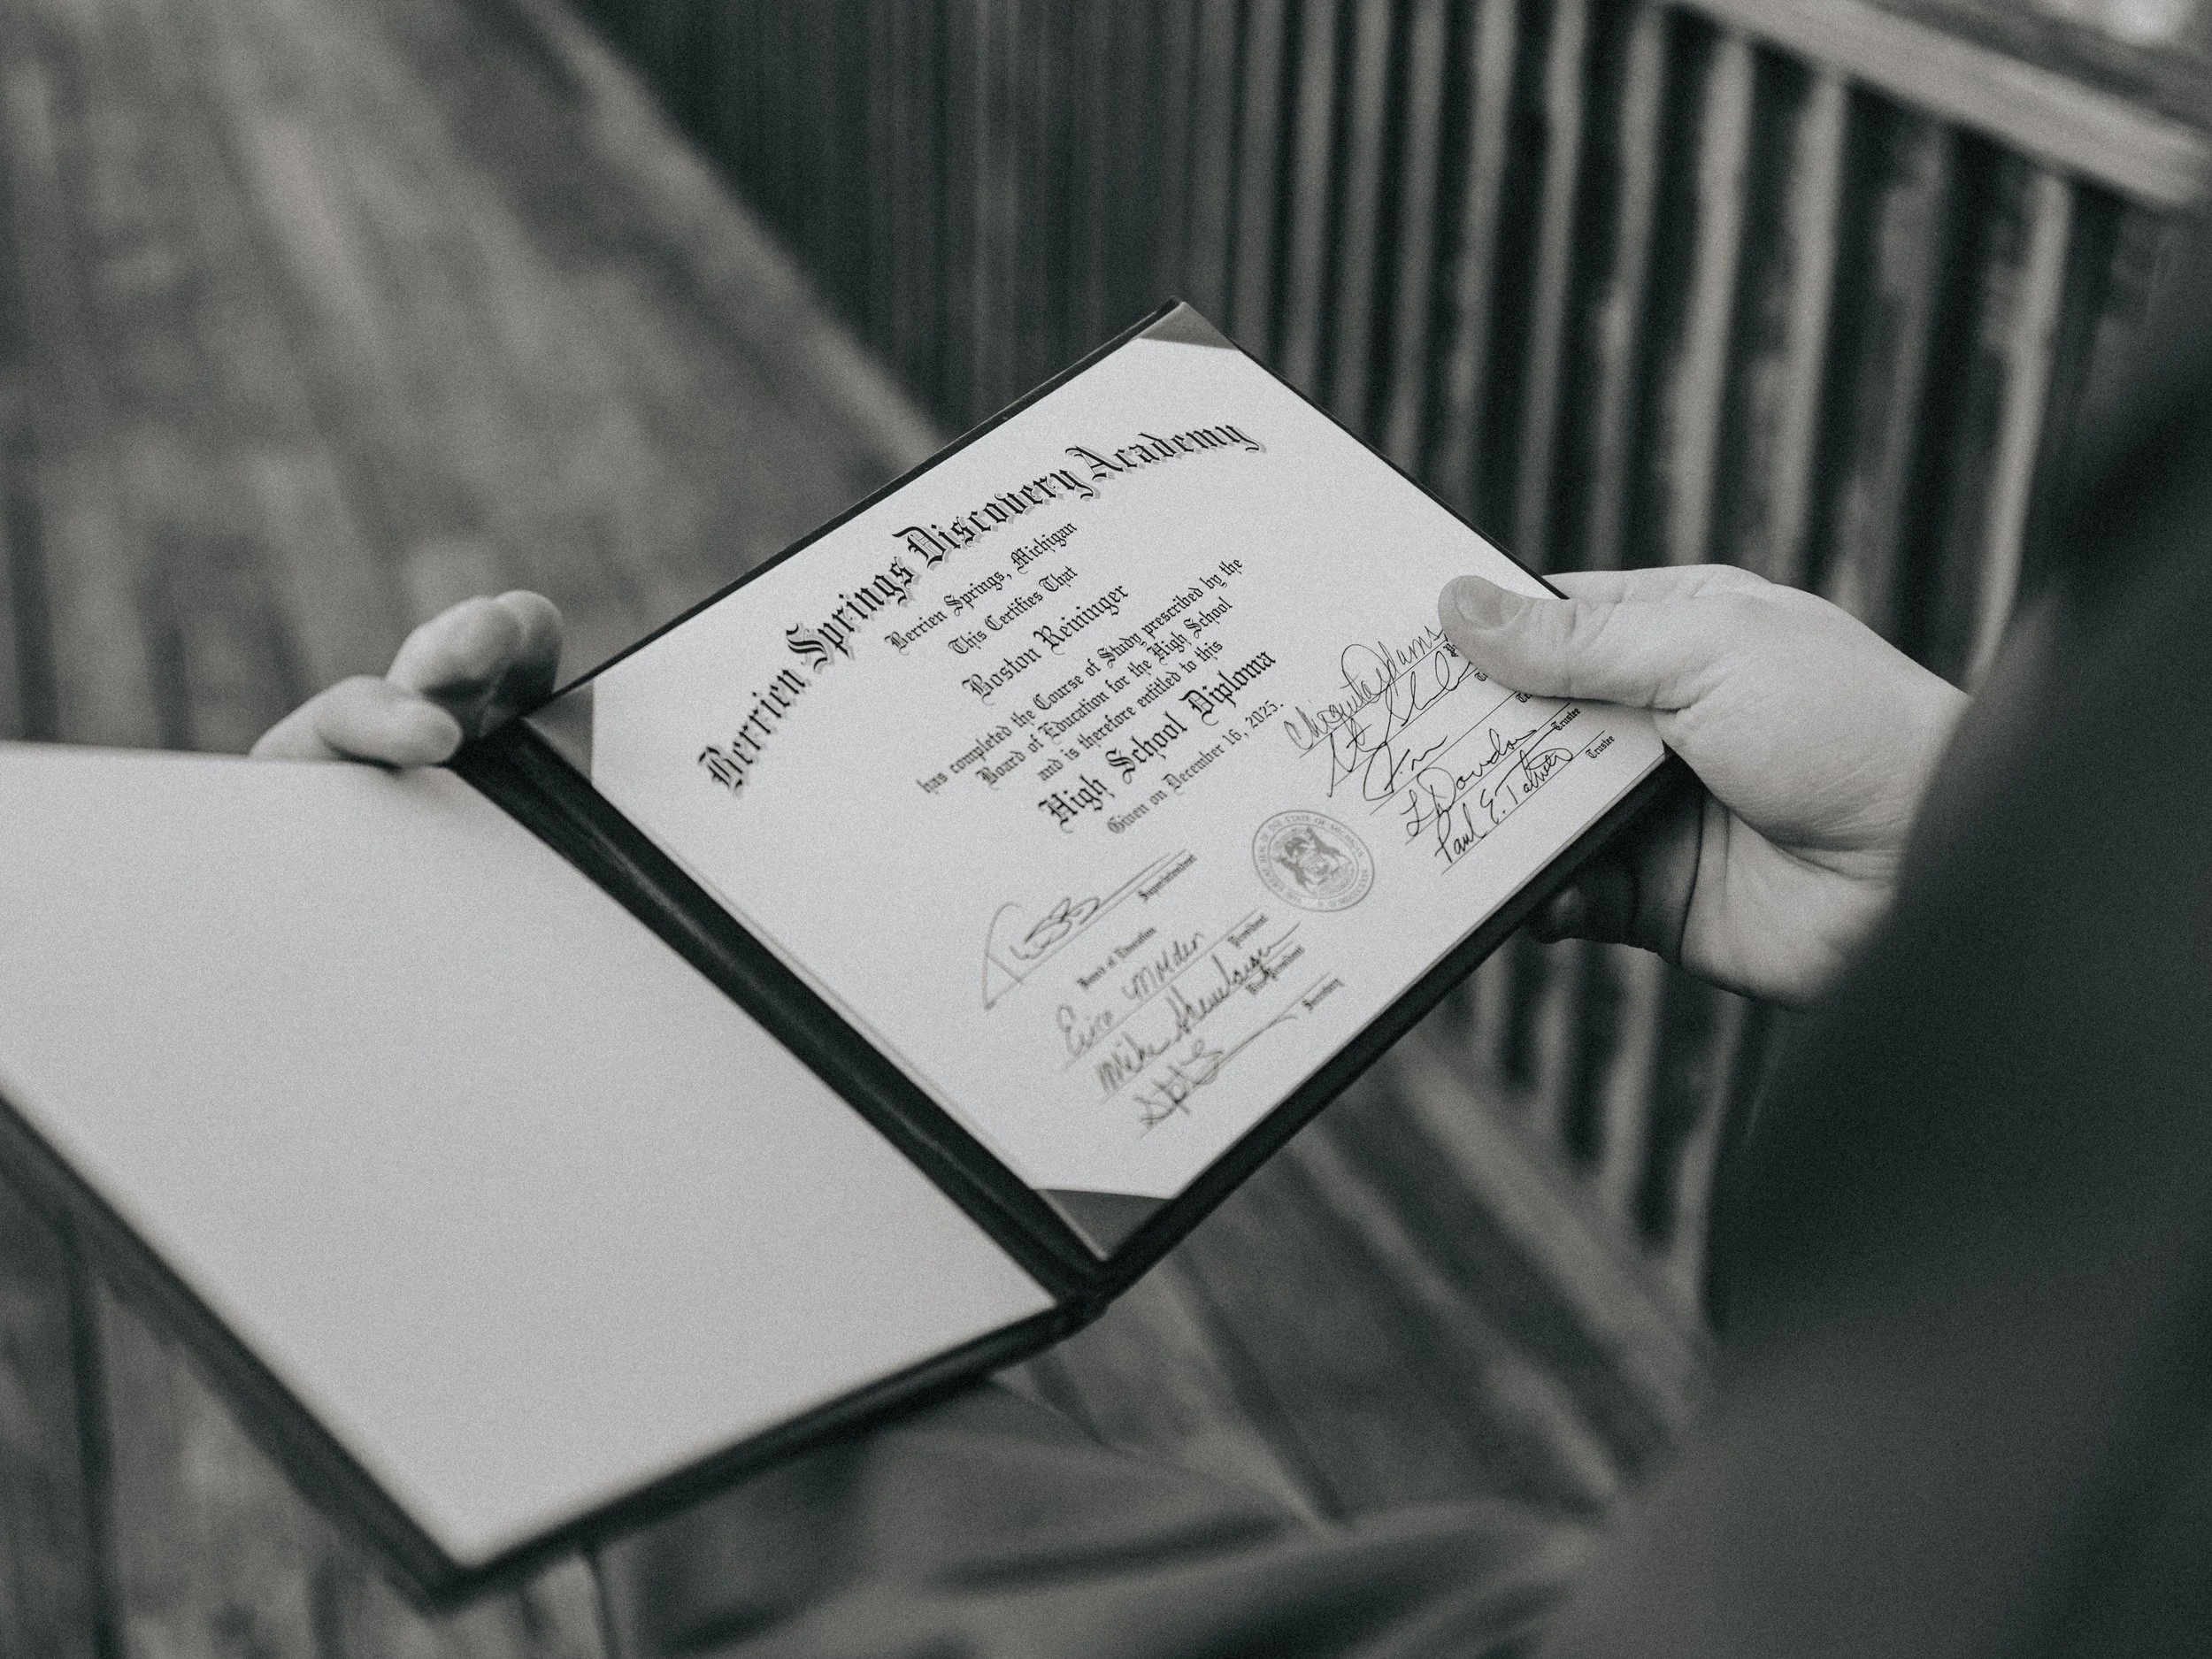 Berrien Springs Discovery Academy
Berrien Springs, Michigan
This Certifies That
Boston Reininger
has completed the Course of Study prescribed by the
Board of Education for the High School
and is therefore entitled to this
High School Diploma
Given on December 16, 2025.
Superintendent
Board of Education
President
Mike
Vice President
Secretary
Chiquita Adams
Trustee
Paul E.
Trustee
THE GREAT SEAL OF THE STATE OF MICHIGAN